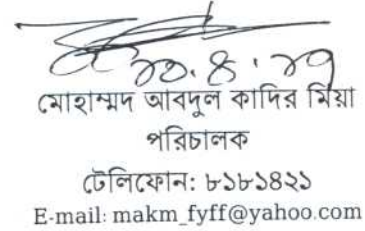 মোহাম্মদ আবদুল কাদির মিয়া
পরিচালক
টেলিফোন: ৮১৮১৪২১
E-mail: makm_fyff@yahoo.com